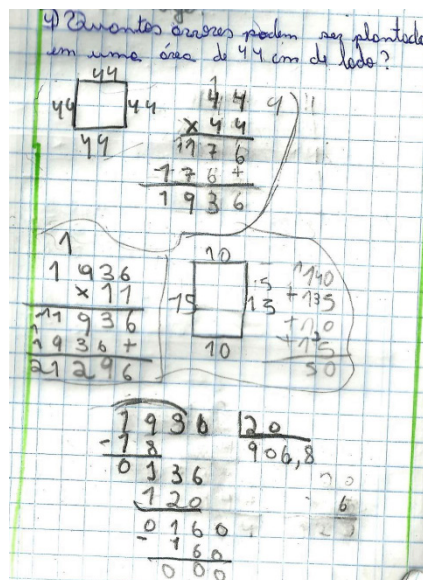 4) Quantos arvores podem ser plantado
em uma área de 44 cm de lado?
44
44 44
44
1
44
x44
1176
176+
1936
1
1936
x11
11936
1936+
21296
10
15 15
10
1936 20
-18 906,8
0136
120
0160
-160
000